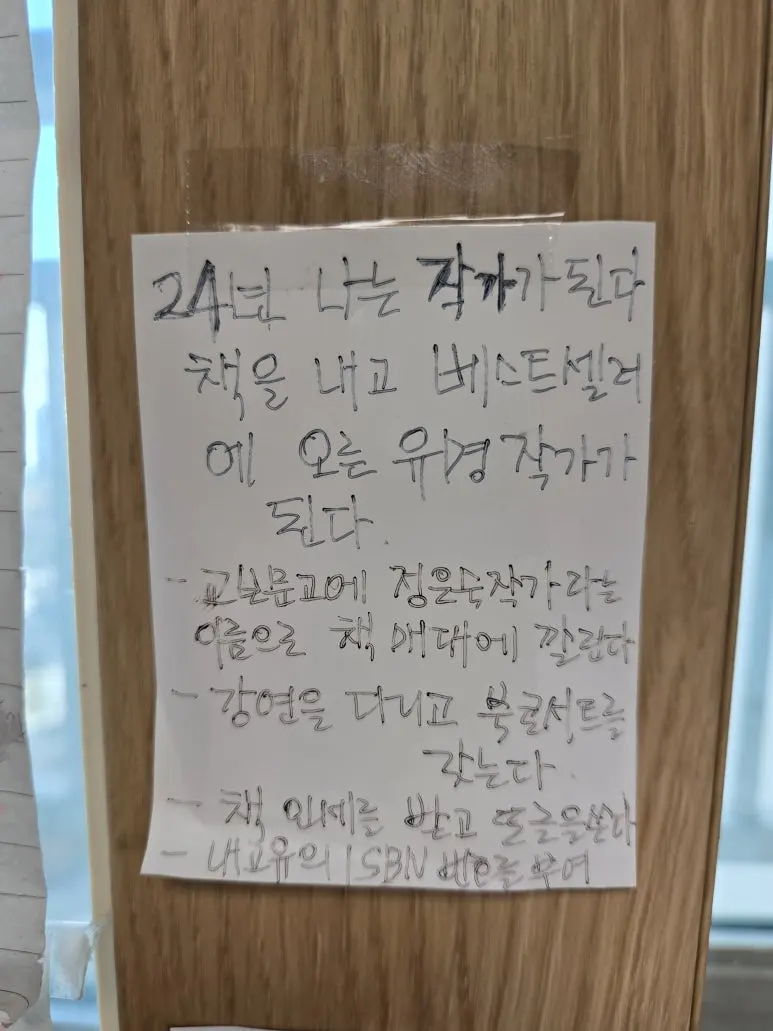 24년 나는 작가가 된다
책을 내고 베스트셀러
에 오른 유경 작가가
된다.
- 교보문고에 정은숙작가라는
이름으로 책 매대에 깔린다
- 강연을 다니고 북콘서트를
갖는다.
- 책 인세를 받고 또 글을 쓴다
- 내 고유의 ISBN 번호를 부여